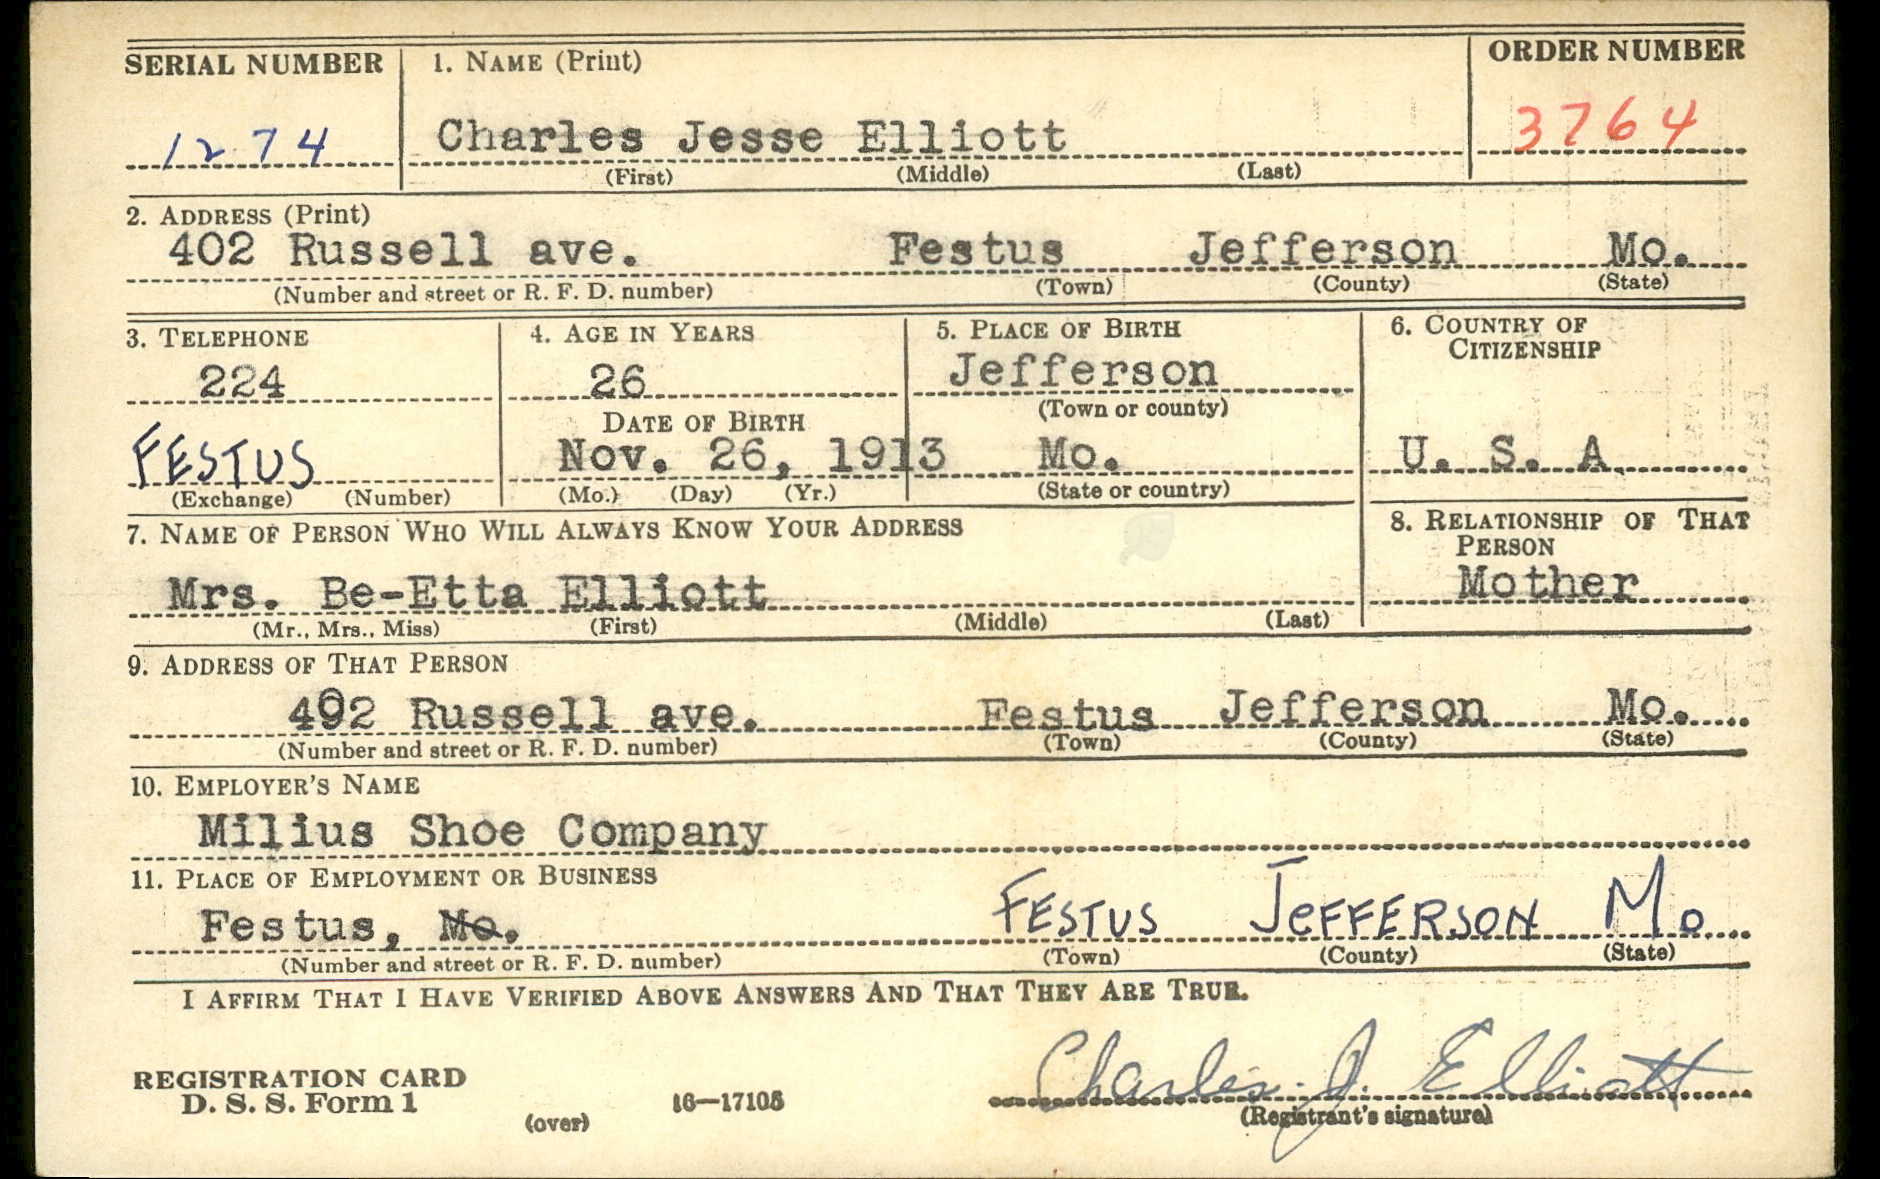 SERIAL NUMBER 1. NAME (Print) ORDER NUMBER
1274 Charles Jesse Elliott 3764
(First) (Middle) (Last)
2. ADDRESS (Print)
402 Russell ave. Festus Jefferson Mo.
(Number and street or R. F. D. number) (Town) (County) (State)
3. TELEPHONE 4. AGE IN YEARS 5. PLACE OF BIRTH 6. COUNTRY OF
CITIZENSHIP
224 26 Jefferson
DATE OF BIRTH (Town or county)
FESTUS Nov. 26, 1913 Mo. U. S. A.
(Exchange) (Number) (Mo.) (Day) (Yr.) (State or country)
7. NAME OF PERSON WHO WILL ALWAYS KNOW YOUR ADDRESS 8. RELATIONSHIP OF THAT
PERSON
Mrs. Be-Etta Elliott Mother
(Mr., Mrs., Miss) (First) (Middle) (Last)
9. ADDRESS OF THAT PERSON
402 Russell ave. Festus Jefferson Mo.
(Number and street or R. F. D. number) (Town) (County) (State)
10. EMPLOYER'S NAME
Milius Shoe Company
11. PLACE OF EMPLOYMENT OR BUSINESS
Festus, Mo. FESTUS JEFFERSON Mo
(Number and street or R. F. D. number) (Town) (County) (State)
I AFFIRM THAT I HAVE VERIFIED ABOVE ANSWERS AND THAT THEY ARE TRUE.
REGISTRATION CARD
D. S. S. Form 1 16—17105 Charles J. Elliott
(over) (Registrant's signature)